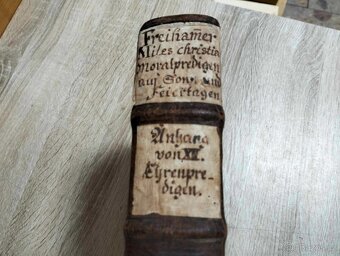 Freihamer
Miles christia
Moralpredigen
auf Sonn und
Feiertagen
Anhang
von XII.
Ehrenpre-
digen.